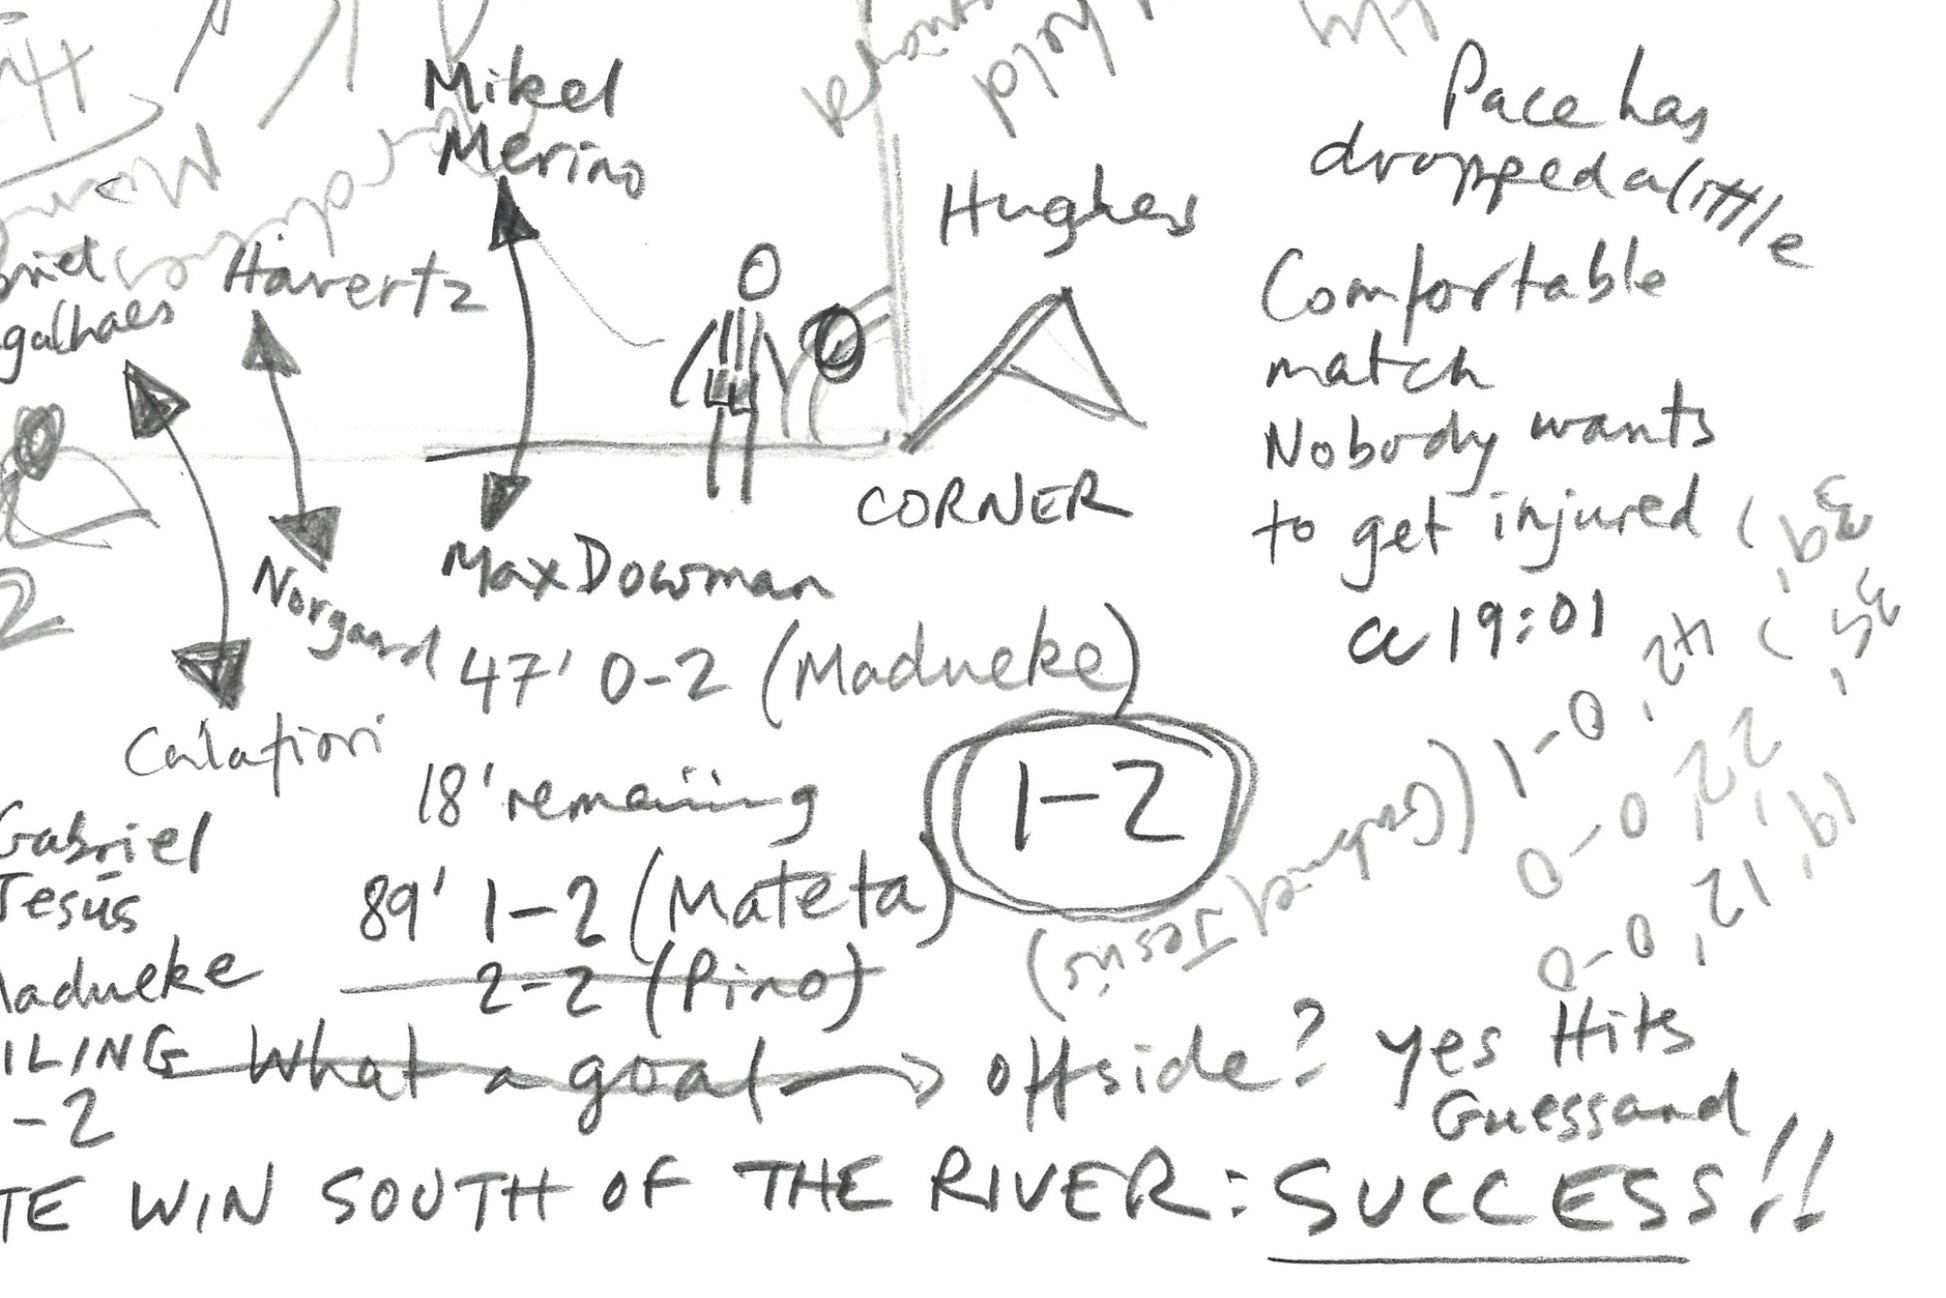 Mikel
Merino
Havertz
galhaes
Hughes
hold
Pace has
dropped a little
Comfortable
match
Nobody wants
to get injured
a 19:01
CORNER
Norgaard
Max Dowman
Calafiori
47' 0-2 (Madueke)
18' remaining
1-2
89' 1-2 (Mateta)
2-2 (Pino)
Gabriel
Jesus
adueke
ILING What a goal → offside? yes Hits
Guessand
-2
TE WIN SOUTH OF THE RIVER: SUCCESS!!
42' 0-1 (Gabriel Jesus)
22' 0-0
12' 0-0